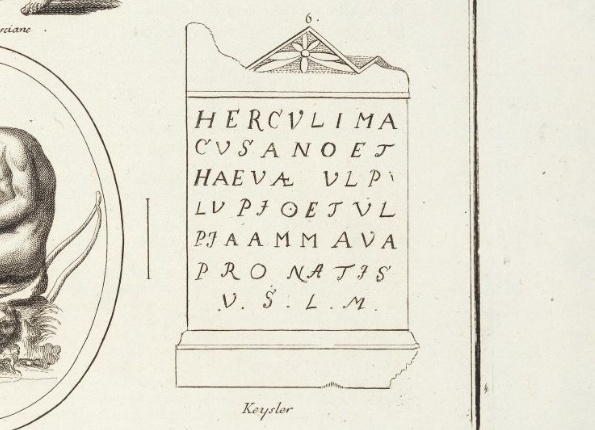 rciane
6.
HERCVLI MA
CVSANO ET
HAEVÆ VLP
LVPIO ET VL
PIA AMMAVA
PRO NATIS
V. S. L. M.
Keysler